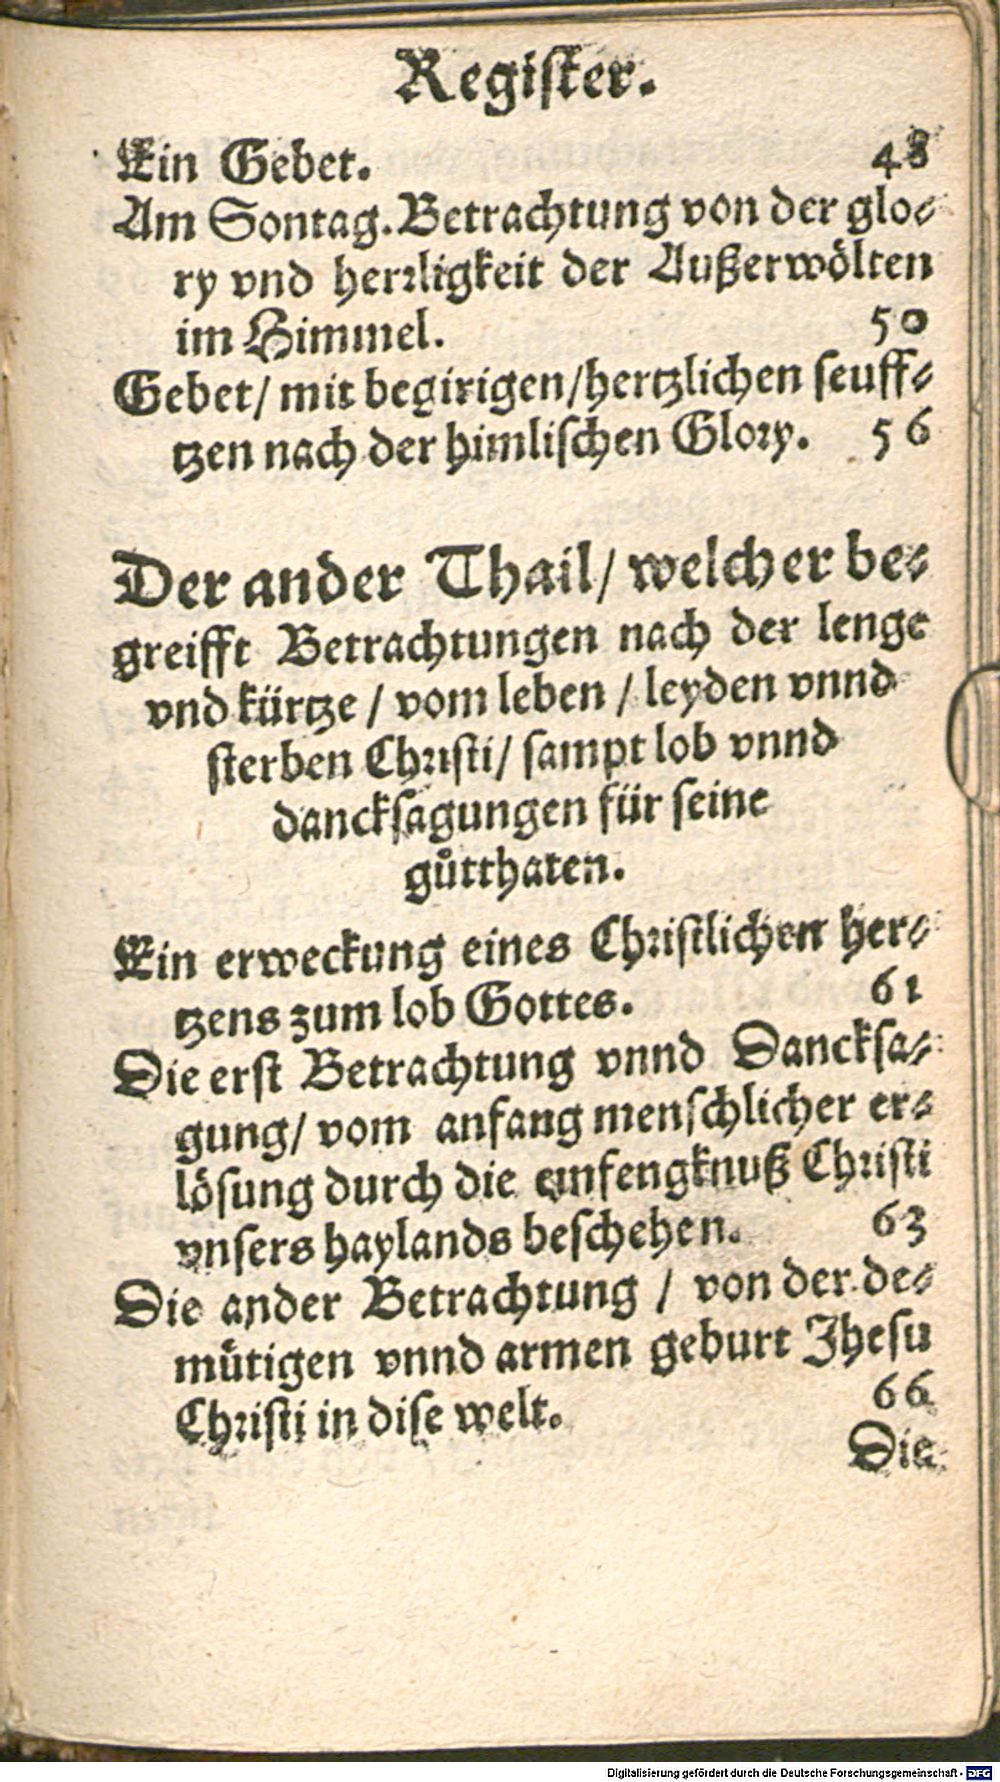 Regiſter.
Ein Gebet. 48
Am Sontag. Betrachtung von der glo-
ry vnd herrligkeit der Außerwölten
im Himmel. 50
Gebet/ mit begirigen/hertzlichen ſeuff-
tzen nach der himliſchen Glory. 56
Der ander Thail/ welcher be-
greifft Betrachtungen nach der lenge
vnd kürtze / vom leben / leyden vnnd
ſterben Chriſti/ ſampt lob vnnd
danckſagungen für ſeine
gůtthaten.
Ein erweckung eines Chriſtlichen her-
tzens zum lob Gottes. 61
Die erſt Betrachtung vnnd Danckſa-
gung/ vom anfang menſchlicher er-
löſung durch die emfengknuß Chriſti
vnſers haylands beſchehen. 63
Die ander Betrachtung / von der de-
mütigen vnnd armen geburt Jheſu
Chriſti in diſe welt. 66
Die
Digitalisierung gefördert durch die Deutsche Forschungsgemeinschaft - DFG